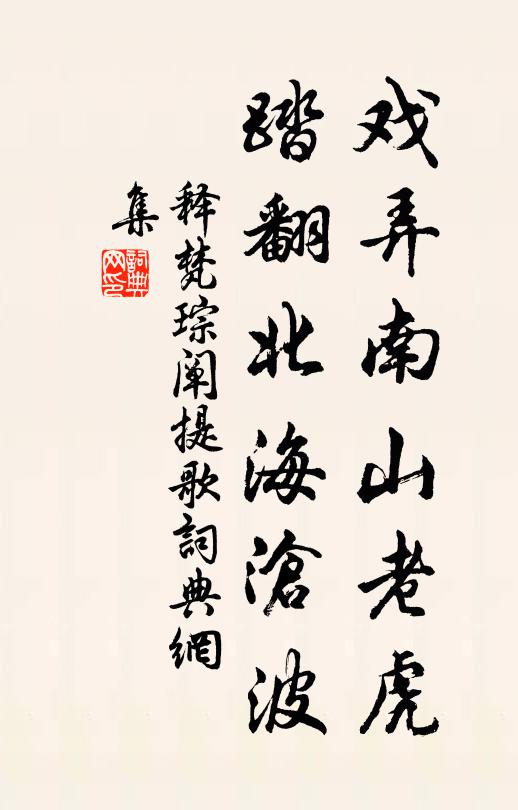 戏弄南山老虎
踏翻北海滄波
释梵琮阐提歌詞典網
集
詞典
网印